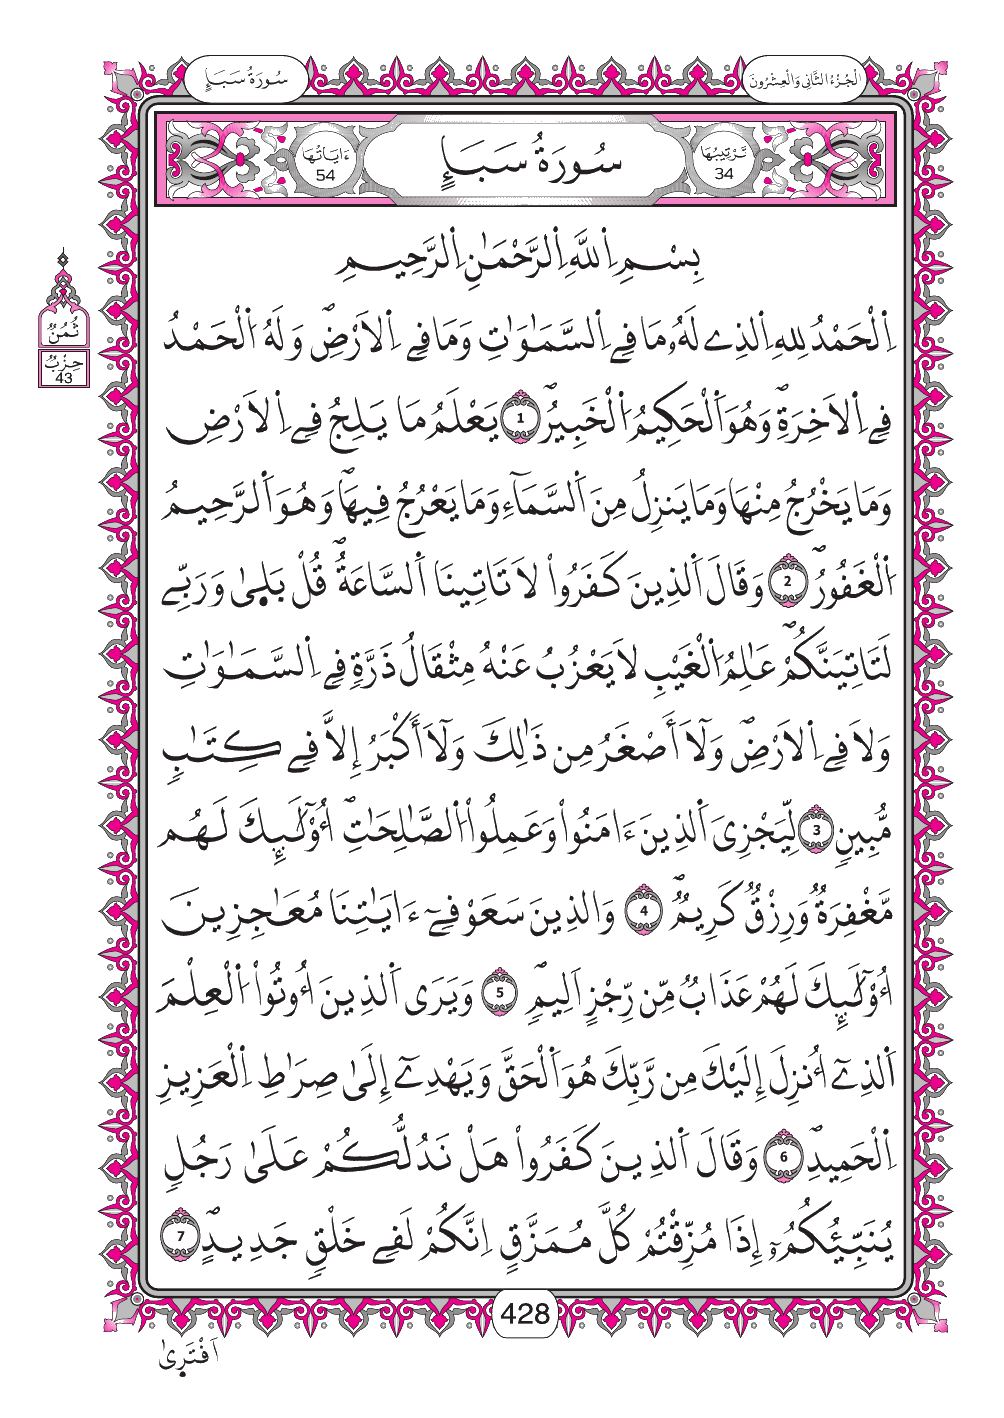 الْجُزْءُ الثَّانِي وَالْعِشْرُونَ
سُورَةُ سَبَإٍ
تَرْتِيبُهَا 34
سُورَةُ سَبَإٍ
ءَايَاتُهَا 54
بِسْمِ اِللَّهِ اِلرَّحْمَٰنِ اِلرَّحِيمِ
ثُمُنٌ
حِزْبٌ
43
اِ۬لْحَمْدُ لِلهِ اِ۬لذِے لَهُۥ مَا فِے اِ۬لسَّمَٰوَٰتِ وَمَا فِے اِ۬لَارْضِۖ وَلَهُ اُ۬لْحَمْدُ
فِے اِ۬لَاخِرَةِۖ وَهُوَ اَ۬لْحَكِيمُ اُ۬لْخَبِيرُۖ 1 يَعْلَمُ مَا يَلِجُ فِے اِ۬لَارْضِ
وَمَا يَخْرُجُ مِنْهَا وَمَا يَنزِلُ مِنَ اَ۬لسَّمَآءِ وَمَا يَعْرُجُ فِيهَاۖ وَهُوَ اَ۬لرَّحِيمُ
اُ۬لْغَفُورُۖ 2 وَقَالَ اَ۬لذِينَ كَفَرُواْ لَا تَاتِينَا اَ۬لسَّاعَةُۖ قُلْ بَل۪يٰ وَرَبِّے
لَتَاتِيَنَّكُمْۖ عَٰلِمُ اُ۬لْغَيْبِ لَا يَعْزُبُ عَنْهُ مِثْقَالُ ذَرَّةٖ فِے اِ۬لسَّمَٰوَٰتِ
وَلَا فِے اِ۬لَارْضِۖ وَلَآ أَصْغَرُ مِن ذَٰلِكَ وَلَآ أَكْبَرُ إِلَّا فِے كِتَٰبٖ
مُّبِينٖ 3 لِّيَجْزِيَ اَ۬لذِينَ ءَامَنُواْ وَعَمِلُواْ اُ۬لصَّٰلِحَٰتِۖ أُوْلَٰٓئِكَ لَهُم
مَّغْفِرَةٞ وَرِزْقٞ كَرِيمٞۖ 4 وَالذِينَ سَعَوْ فِےٓ ءَايَٰتِنَا مُعَٰجِزِينَ
أُوْلَٰٓئِكَ لَهُمْ عَذَابٞ مِّن رِّجْزٍ اَلِيمٖۖ 5 وَيَرَي اَ۬لذِينَ أُوتُواْ اُ۬لْعِلْمَ
اَ۬لذِےٓ أُنزِلَ إِلَيْكَ مِن رَّبِّكَ هُوَ اَ۬لْحَقَّ وَيَهْدِےٓ إِلَيٰ صِرَٰطِ اِ۬لْعَزِيزِ
اِ۬لْحَمِيدِۖ 6 وَقَالَ اَ۬لذِينَ كَفَرُواْ هَلْ نَدُلُّكُمْ عَلَيٰ رَجُلٖ
يُنَبِّئُكُمُۥٓ إِذَا مُزِّقْتُمْ كُلَّ مُمَزَّقٍ اِنَّكُمْ لَفِے خَلْقٖ جَدِيدٍۖ 7
428
اَفْتَر۪يٰ